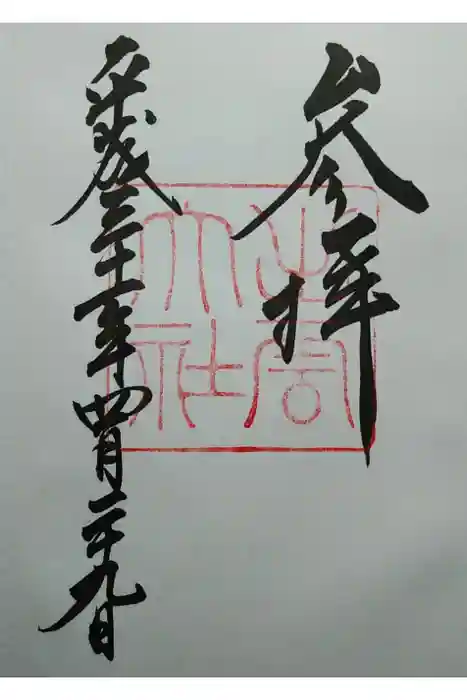 参拝
出雲
大社
平成三十一年四月二十九日